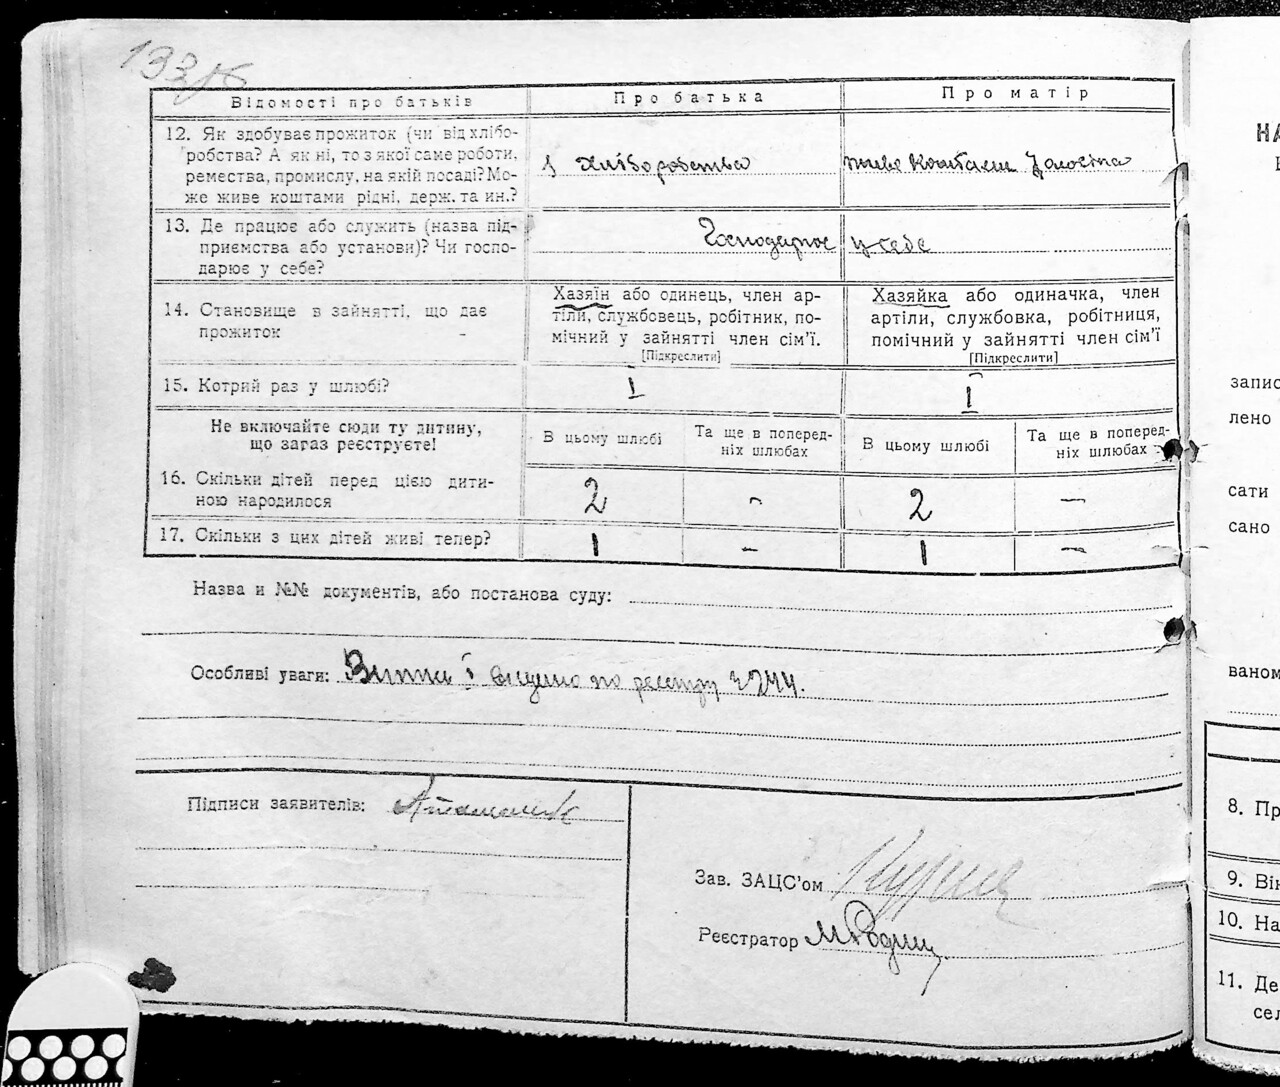 133
Відомості про батьків
Про батька
Про матір
12. Як здобуває прожиток (чи від хлібо-
робства? А як ні, то з якої саме роботи,
ремества, промислу, на якій посаді? Мо-
же живе коштами рідні, держ. та ин.?
з хліборобства
живе коштами чоловіка
13. Де працює або служить (назва під-
приємства або установи)? Чи госпо-
дарює у себе?
Господарює у себе
14. Становище в зайнятті, що дає
прожиток
Хазяїн або одинець, член ар-
тіли, службовець, робітник, по-
мічний у зайнятті член сім'ї.
[Підкреслити]
Хазяйка або одиначка, член
артіли, службовка, робітниця,
помічний у зайнятті член сім'ї
[Підкреслити]
15. Котрий раз у шлюбі?
I
I
Не включайте сюди ту дитину,
що зараз реєструєте!
В цьому шлюбі
Та ще в поперед-
ніх шлюбах
В цьому шлюбі
Та ще в поперед-
ніх шлюбах
16. Скільки дітей перед цією дити-
ною народилося
2 - 2 -
17. Скільки з цих дітей живі тепер?
1 - 1 -
Назва и №№ документів, або постанова суду:
Особливі уваги: по реєстру 244.
Підписи заявителів:
Зав. ЗАЦС'ом
Реєстратор
НА
запис
лено
сати
сано
ваном
8. Пр
9. Вік
10. На
11. Де
сел